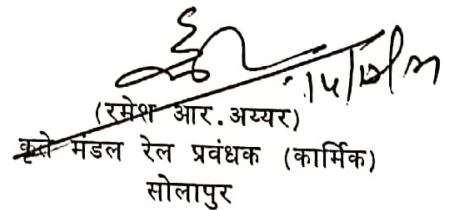 (रमेश आर. अय्यर)
कृते मंडल रेल प्रवंधक (कार्मिक)
सोलापुर